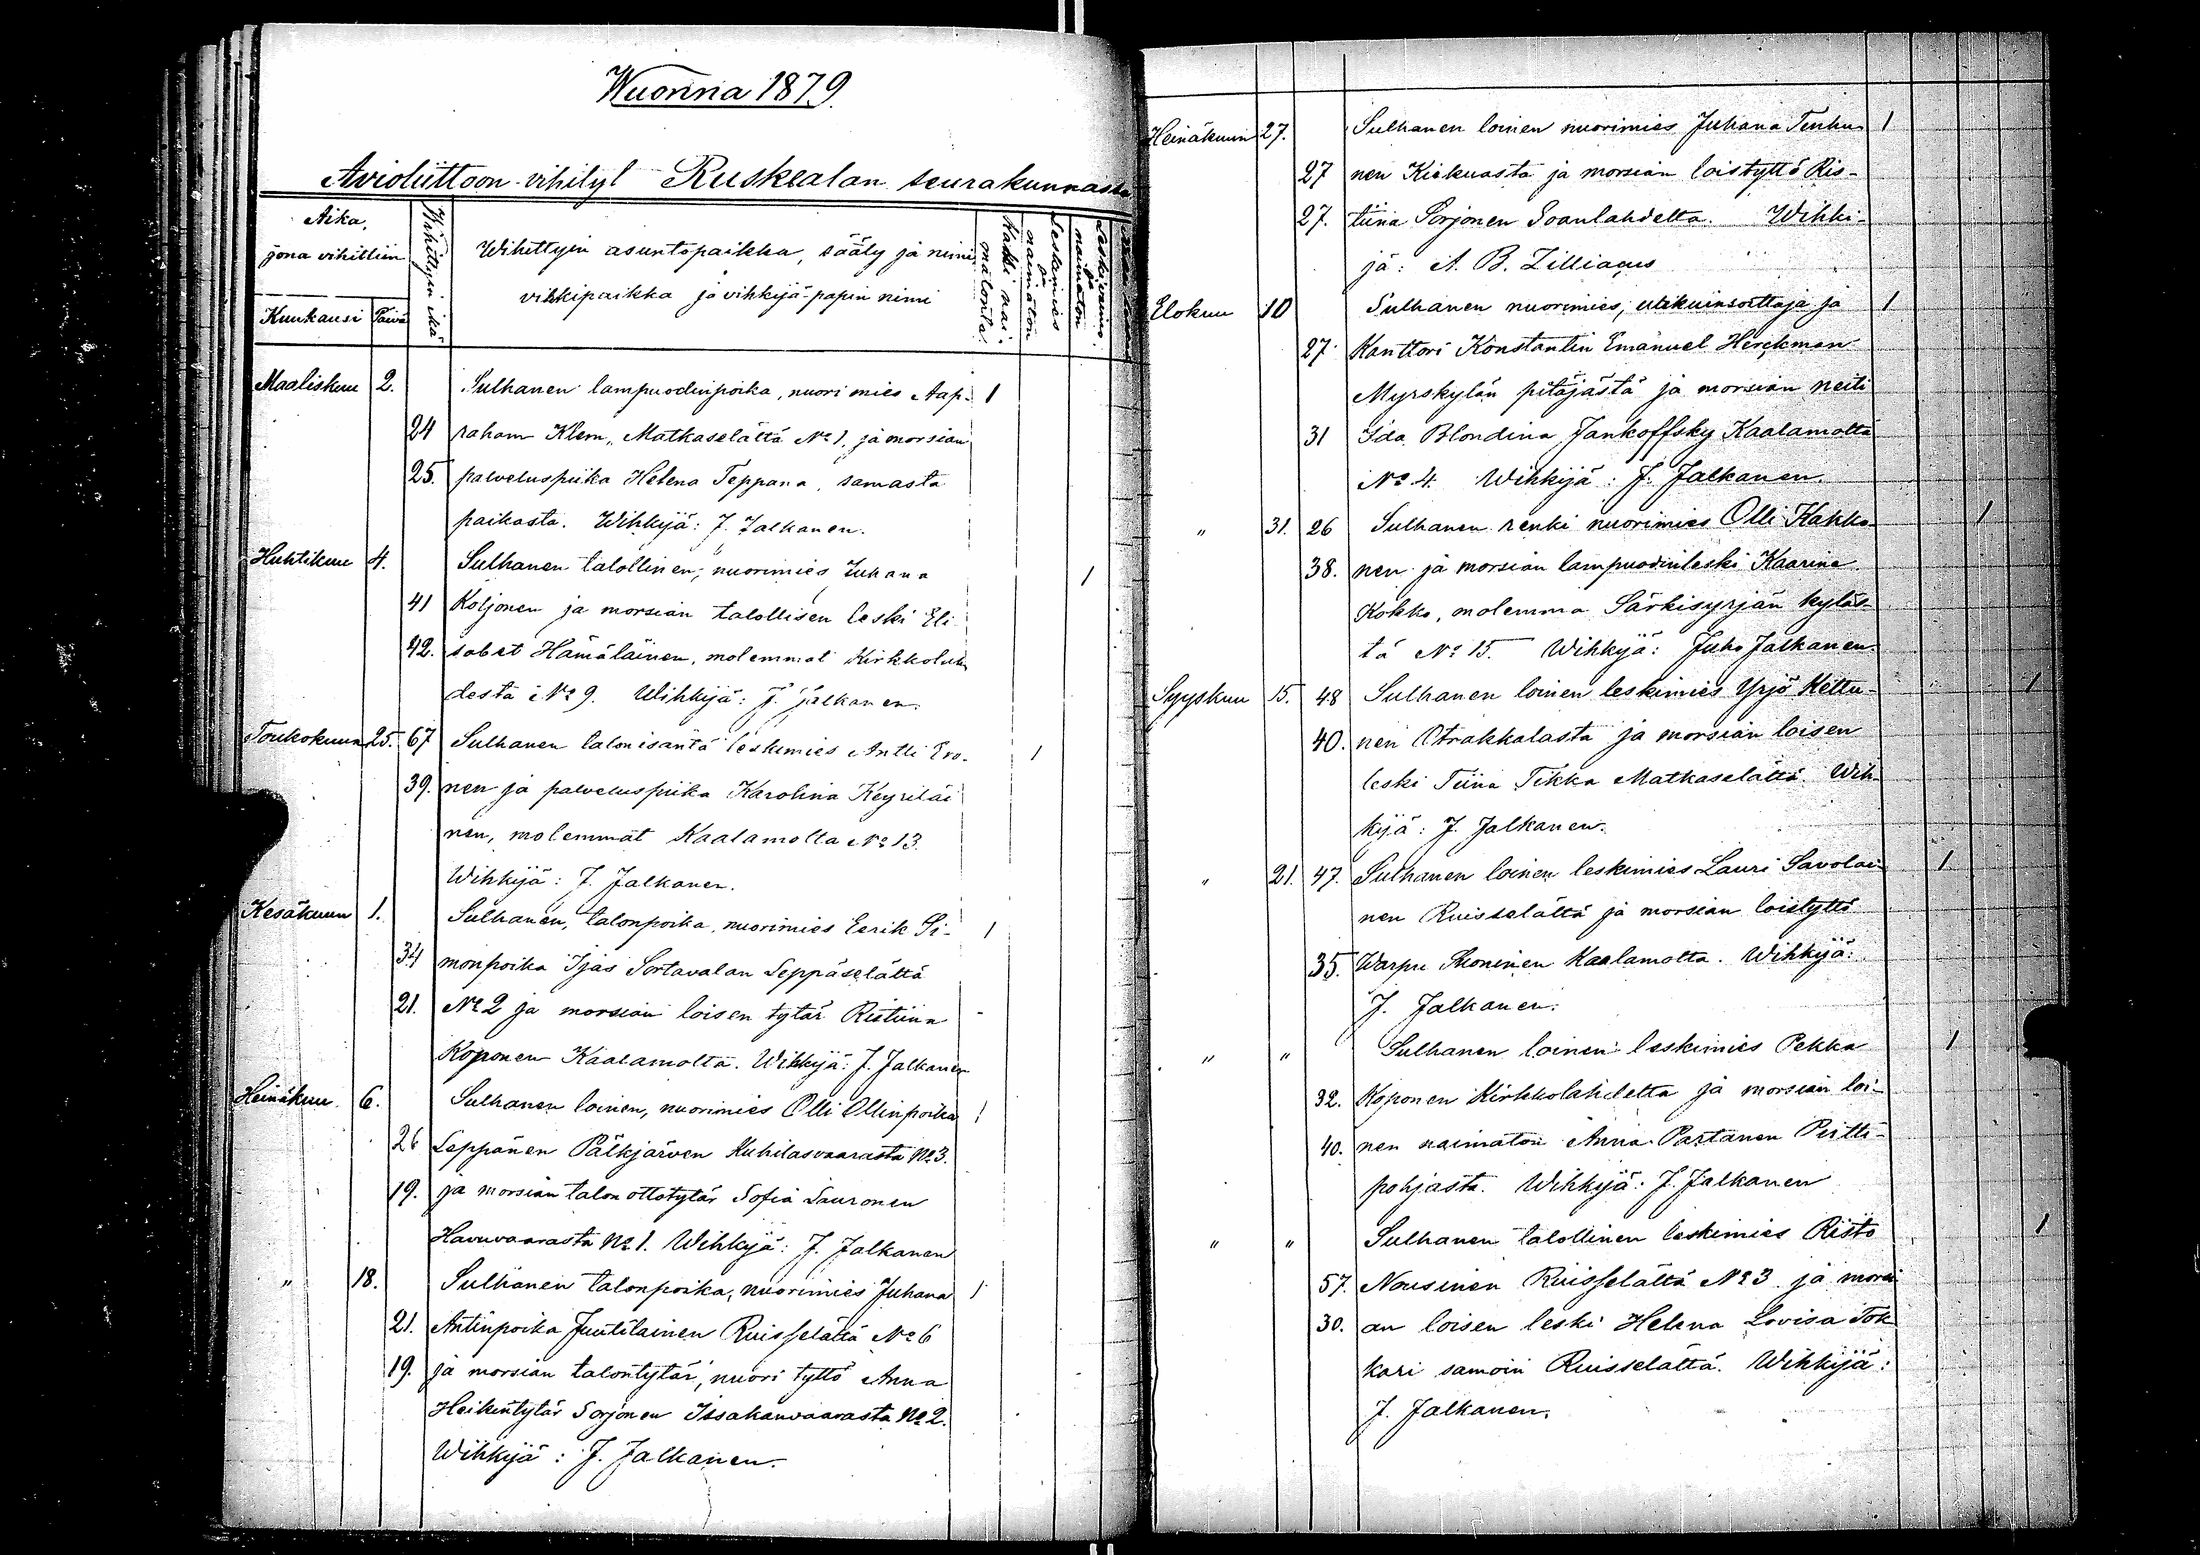 Wuonna 1879.
Avioliittoon vihityt Ruskealan seurakunnassa
Aika,
jona vihittiin
Kuukausi Päivä
Wihittyin ikä
Wihittyin asuntopaikka, sääty ja nimi
vihkipaikka ja vihkijä-papin nimi
Kaksi nai-
mätöntä.
Leskimies
ja
naimaton
Leskivaimo
ja
naimaton
Maaliskuu 2. Sulhanen lampuodinpoika, nuori mies Aap- 1
24 raham Klem, Matkaselältä No 1, ja morsian
25. palveluspiika Helena Teppana, samasta
paikasta. Wihkijä: J. Jalkanen.
Huhtikuu 4. Sulhanen talollinen, nuorimies Juhana 1
41 Koljonen ja morsian talollisen leski Eli-
42. sabet Hämäläinen, molemmat Kirkkolah
desta No 9. Wihkijä: J. Jalkanen.
Toukokuun 25. 67 Sulhanen talonisäntä leskimies Antti Ero- 1
39. nen ja palveluspiika Karolina Keyriläi
nen, molemmat Kaalamolta No 13.
Wihkijä: J. Jalkanen.
Kesäkuun 1. Sulhanen, talonpoika, nuorimies Eerik Si- 1
34 monpoika Ijäs Sortavalan Leppäselältä
21. No 2 ja morsian loisen tytär Ristiina
Koponen Kaalamolta. Wihkijä: J. Jalkanen
Heinäkuu 6. Sulhanen loinen, nuorimies Olli Ollinpoika 1
26 Leppänen Pälkjärven Kuhilasvaarasta No 3.
19. ja morsian talon ottotytär Sofia Lauronen
Havuvaarasta No 1. Wihkijä: J. Jalkanen
" 18. Sulhanen talonpoika, nuorimies Juhana 1
21. Antinpoika Juutilainen Ruisselältä No 6
19. ja morsian talontytär, nuori tyttö Anna
Heikintytär Sorjonen Issakanvaarasta No 2.
Wihkijä: J. Jalkanen.
Heinäkuun 27. Sulhanen loinen nuorimies Juhana Tenhu 1
27 nen Kiekuasta ja morsian loistyttö Ris-
27. tiina Sorjonen Soanlahdelta. Wihki-
jä: A. B. Zilliacus
Elokuu 10 Sulhanen nuorimies, urkuinsoittaja ja 1
27 Kanttori Konstantin Emanuel Herckman
Myrskylän pitäjästä ja morsian neiti
31 Ida Blondina Jankoffsky Kaalamolta
No 4. Wihkijä: J. Jalkanen.
" 31. 26 Sulhanen renki nuorimies Olli Kakko- 1
38. nen ja morsian lampuodinleski Kaarina
Kokko, molemma Särkisyrjän kyläs-
tä No 15. Wihkijä: Juho Jalkanen.
Syyskuu 15. 48 Sulhanen loinen leskimies Yrjö Kettu- 1
40. nen Otrakkalasta ja morsian loisen
leski Tiina Tikka Matkaselältä. Wih-
kijä: J. Jalkanen.
" 21. 47. Sulhanen loinen leskimies Lauri Savolai- 1
nen Ruisselältä ja morsian loistyttö
35. Warpu Monen Kaalamolta. Wihkijä:
J. Jalkanen.
" " Sulhanen loinen leskimies Pekka 1
32. Koponen Kirkkolahdelta ja morsian loi-
40. nen naimaton Anna Partanen Pirtti-
pohjasta. Wihkijä: J. Jalkanen
" " Sulhanen talollinen leskimies Risto 1
57. Nousinen Ruisselältä No 3 ja morsi
30. an loisen leski Helena Lovisa Tok
kari samoin Ruisselältä. Wihkijä:
J. Jalkanen.